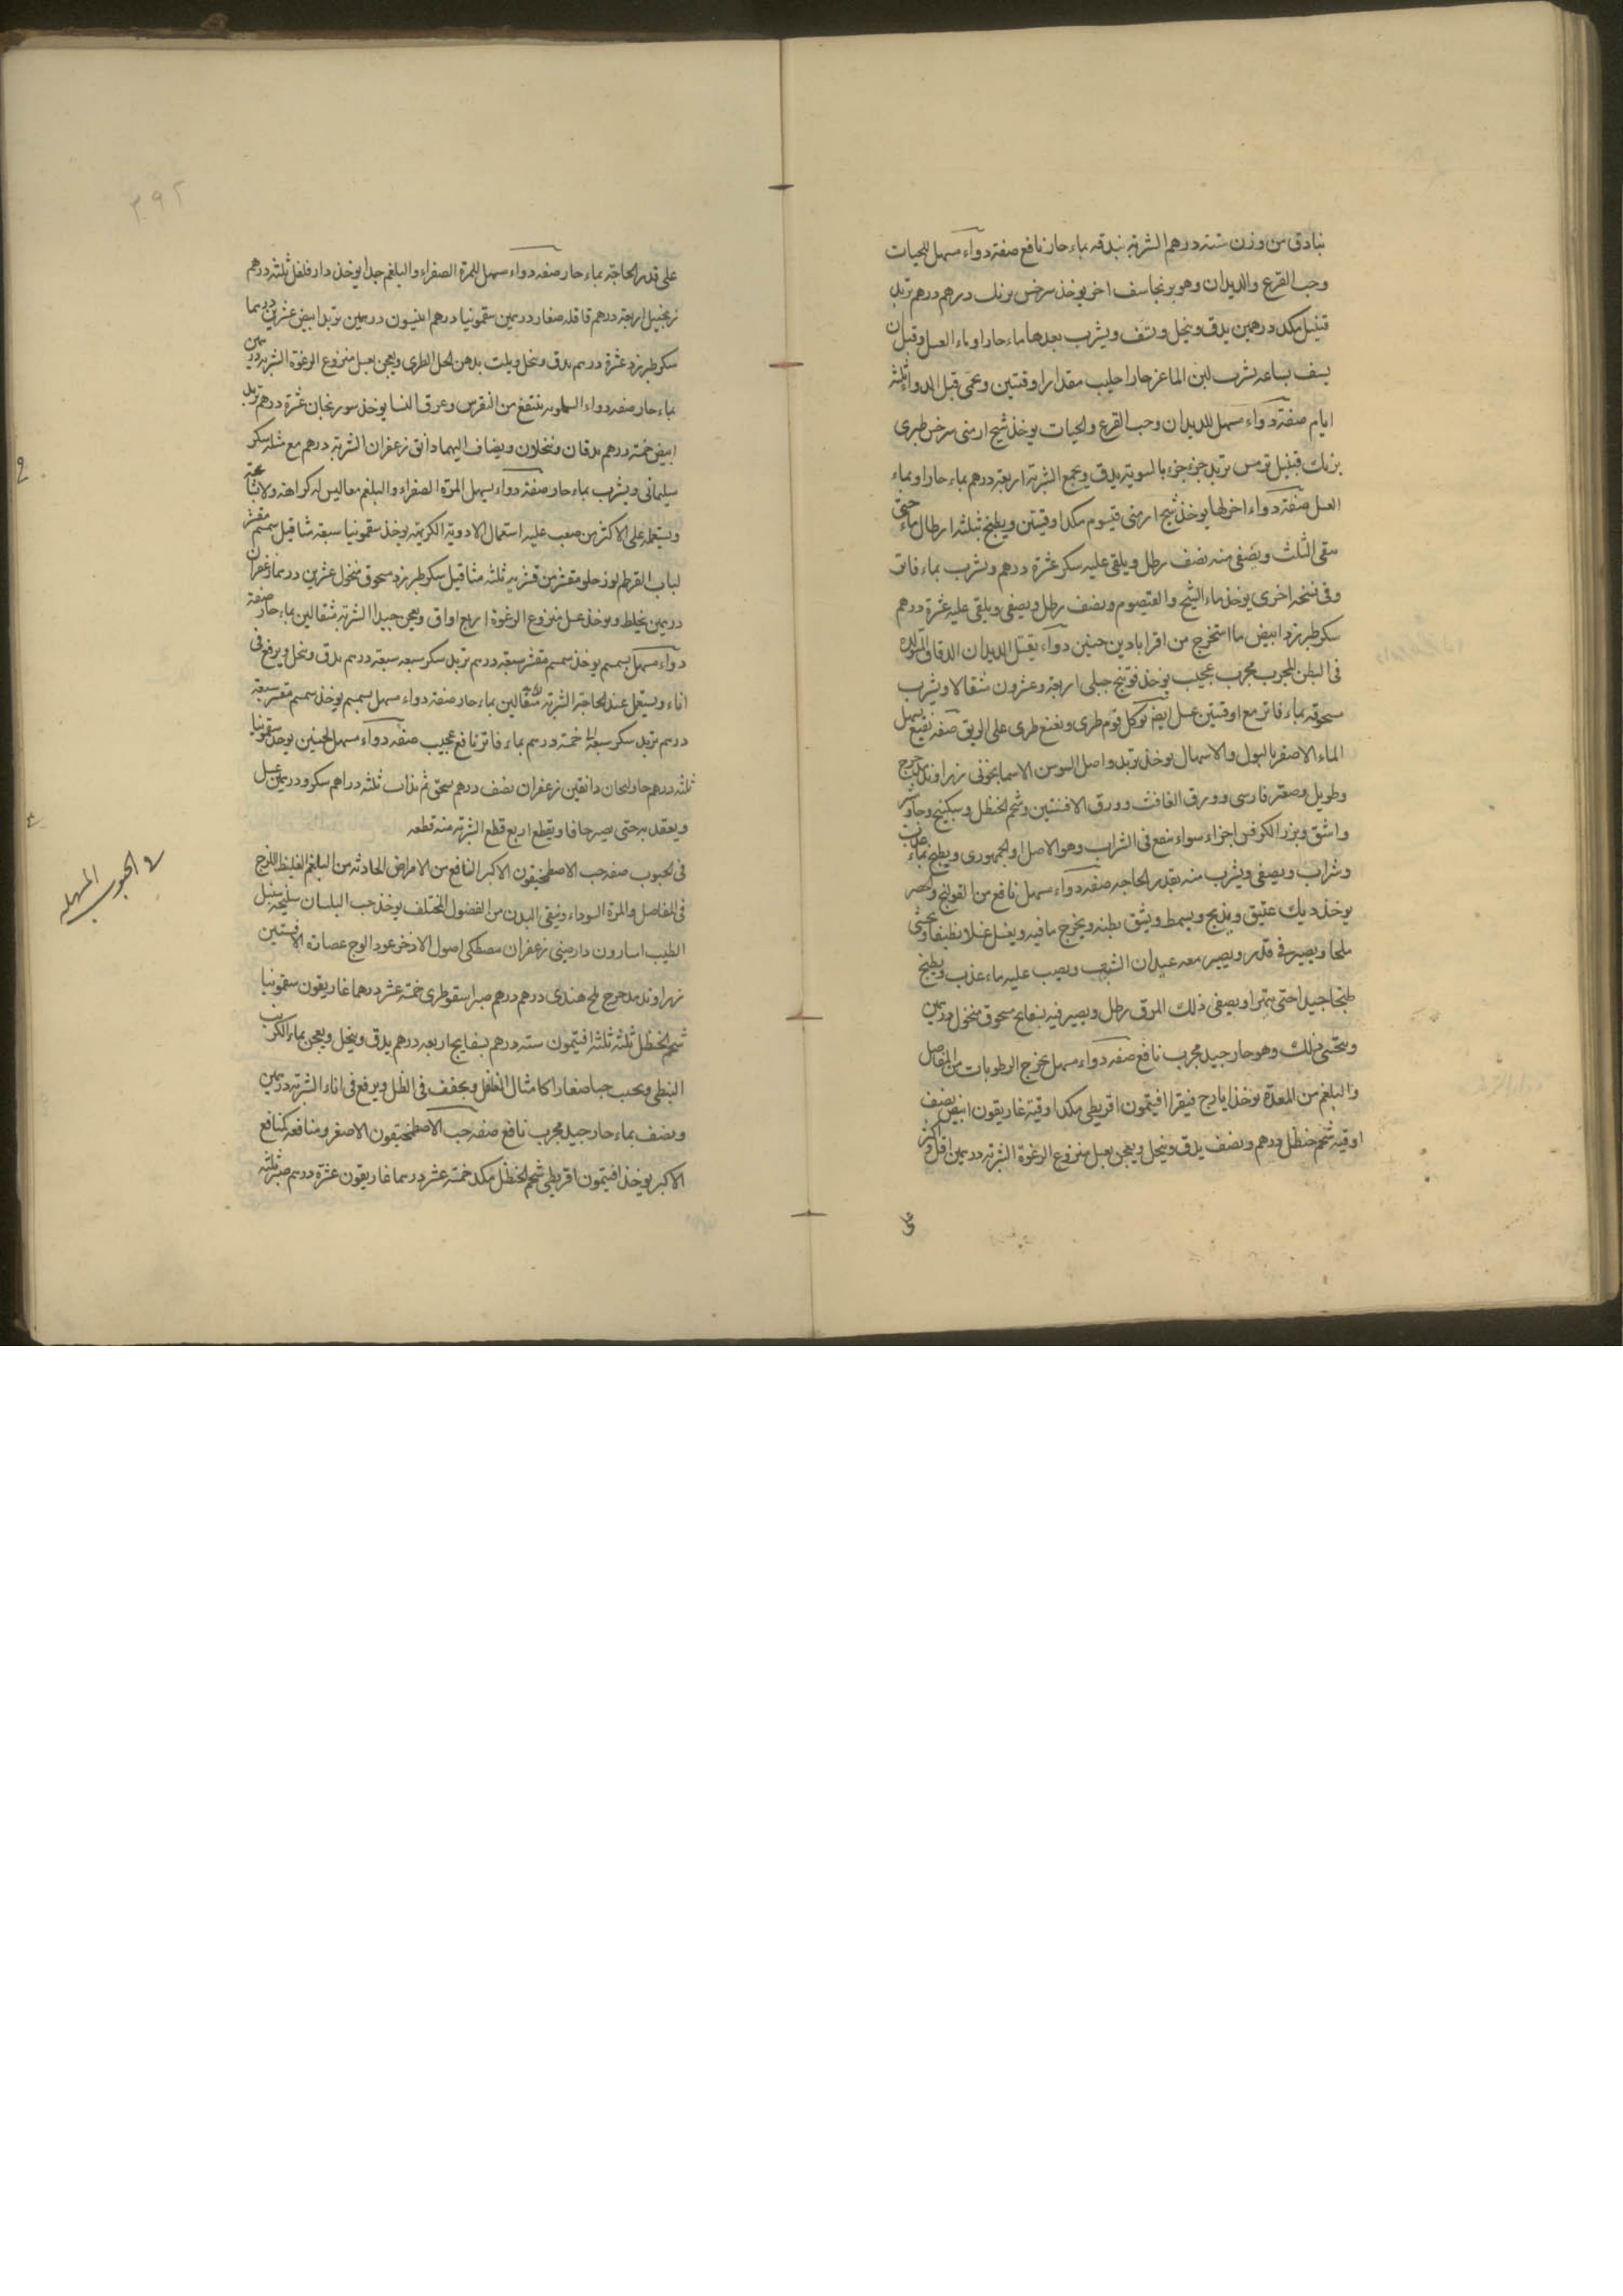 بنادق من وزن ستة درهم الشربة بندقه بماء حار نافع صفة دواء مسهل للحيات
وحب القرع والديدان وهو برنجاسف اخر يوخذ سرخس برنك درهم درهم تربد
قنبيل مكد درهمين يدق وينخل ويسف ويشرب بعدها ماء حار او ماء العسل وقبل ان
يسف بساعه يشرب لبن الماعز حارا حليب مقدار اوقتين ويحمى قبل الدواء ثلثة
ايام صفة دواء مسهل للديدان وحب القرع والحيات يوخذ شيح ارمنى سرخس طبرى
برنك قنبيل ترمس تربد جزء جزء بالسوية يدق ويجمع الشربة اربعة درهم بماء حار او بماء
العسل صفة دواء اخر لها يوخذ شيح ارمنى قيسوم مكد اوقيتين ويطبخ بثلثة ارطال ماء حتى
يبقى الثلث ويصفى منه نصف رطل ويلقى عليه سكر عشرة درهم ويشرب بماء فاتر
وفى نسخه اخرى يوخذ ماء الشيح والقيصوم ونصف رطل ويصفى ويلقى عليه عشرة درهم
سكر طبرزد ابيض ما استخرج من اقرابادين حنين دواء يقتل الديدان الدقاق المتولدة
فى البطن المجرب مجرب عجيب يوخذ فوتنج جبلى اربعة وعشرون مثقالا ويشرب
مسحوقه بماء فاتر مع اوقتين عسل ايضا يوكل ثوم طرى ونعنع طرى على الريق صفه نقيع يسهل
الماء الاصفر بالبول والاسهال يوخذ تربد واصل السوسن الاسمانجونى زراوند مدحرج
وطويل وصعتر فارسى وورق الغافث وورق الافسنتين وشحم الحنظل وسكبينج وجاوشير
واشق وبزر الكرفس اجزاء سواء ينقع فى الشراب وهو الاصل او الجمهورى ويطبخ بماء عذب
وشراب ويصفى ويشرب منه بقدر الحاجه صفه دواء مسهل نافع من القولنج والحصر
يوخذ ديك عتيق ويذبح ويسمط ويشق بطنه ويخرج ما فيه ويغسل غسلا نظيفا ويحشى
ملحا ويصير فى قدر ويصير معه عيدان الشبت ويصب عليه ماء عذب ويطبخ
طبخا جيدا حتى يتهرا ويصفى ذلك المرق رطل ويصير فيه بسفايج مسحوق منخول درهمين
ويتحسى ذلك وهو حار جيد مجرب نافع صفه دواء مسهل يخرج الرطوبات من المفاصل
والبلغم من المعدة يوخذ ايارج فيقرا افتيمون اقريطى مكد اوقية غاريقون ابيض نصف
اوقيه شحم حنظل درهم ونصف يدق وينخل ويعجن بعسل منزوع الرغوة الشربه درهمين اقل واكثر
على
٣٩٢
على قدر الحاجة بماء حار صفه دواء مسهل للمرة الصفراء والبلغم جدا يوخذ دار فلفل ثلثه درهم
زنجبيل اربعة درهم قاقله صغار درهمين سقمونيا درهم انيسون درهمين تربد ابيض عشرين درهما
سكر طبرزد عشرة درهم يدق وينخل ويلت بدهن الحل الطرى ويعجن بعسل منزوع الرغوة الشربه درهمين
بماء حار صفه دواء الملوبه ينتفع من النقرس وعرق النسا يوخذ سورنجان عشرة درهم تربد
ابيض خمسة درهم يدقان وينخلان ويضاف اليهما دانق زعفران الشربة درهم مع مثله سكر
سليمانى ويشرب بماء حار صفة دواء يسهل المرة الصفراء والبلغم معا ليس له كراهة ولا بشاعة
ويستعمله على الاكثر من صعب عليه استعمال الادوية الكريهة يوخذ سقمونيا سبعة مثاقيل سمسم مقشر
لباب القرطم لوز حلو مقشر من قشريه ثلثه مثاقيل سكر طبرزد مسحوق منخول عشرين درهما زعفران
درهمين يخلط ويوخذ عسل منزوع الرغوة اربع اواق ويعجن جيدا الشربة مثقالين بماء حار صفه
دواء مسهل بسمسم يوخذ سمسم مقشر سبعة درهم تربد سكر سبعه سبعة درهم يدق وينخل ويرفع فى
اناء ويستعمل عند الحاجة الشربة مثقالين بماء حار صفة دواء مسهل بسمسم يوخذ سمسم مقشر سبعة
درهم تربد سكر سبعه خمسة درهم بماء فاتر نافع عجيب صفه دواء مسهل لحنين يوخذ سقمونيا
ثلثه درهم خاولنجان دانقين زعفران نصف درهم يسحق ثم يذاب ثلثه دراهم سكر ودرهمين عسل
ويعقد به حتى يصير جافا ويقطع اربع قطع الشربة منه قطعه
فى الحبوب المسهله
فى الحبوب صفه حب الاصطمخيقون الاكبر النافع من الامراض الحادثه من البلغم الغليظ اللزج
فى المفاصل والمرة السوداء وينقى البدن من الفضول المختلف يوخذ حب البلسان سليخه سنبل
الطيب اسارون دارصينى زعفران مصطكى اصول الاذخر عود الوج عصارة الافسنتين
زراوند مدحرج ملح هندى درهم درهم صبر اسقوطرى خمسة عشر درهما غاريقون سقمونيا
شحم الحنظل ثلثه ثلثه افتيمون سته درهم بسفايج اربعه درهم يدق وينخل ويعجن بماء الكرنب
النبطى ويحبب حبا صغارا كامثال الفلفل ويجفف فى الظل ويرفع فى اناء الشربة درهمين
ونصف بماء حار جيد مجرب نافع صفه حب الاصطمخيقون الاصغر ومنافعه كمنافع
الاكبر يوخذ افتيمون اقريطى شحم الحنظل مكد خمسة عشر درهما غاريقون عشرة درهم صبر ثلثه